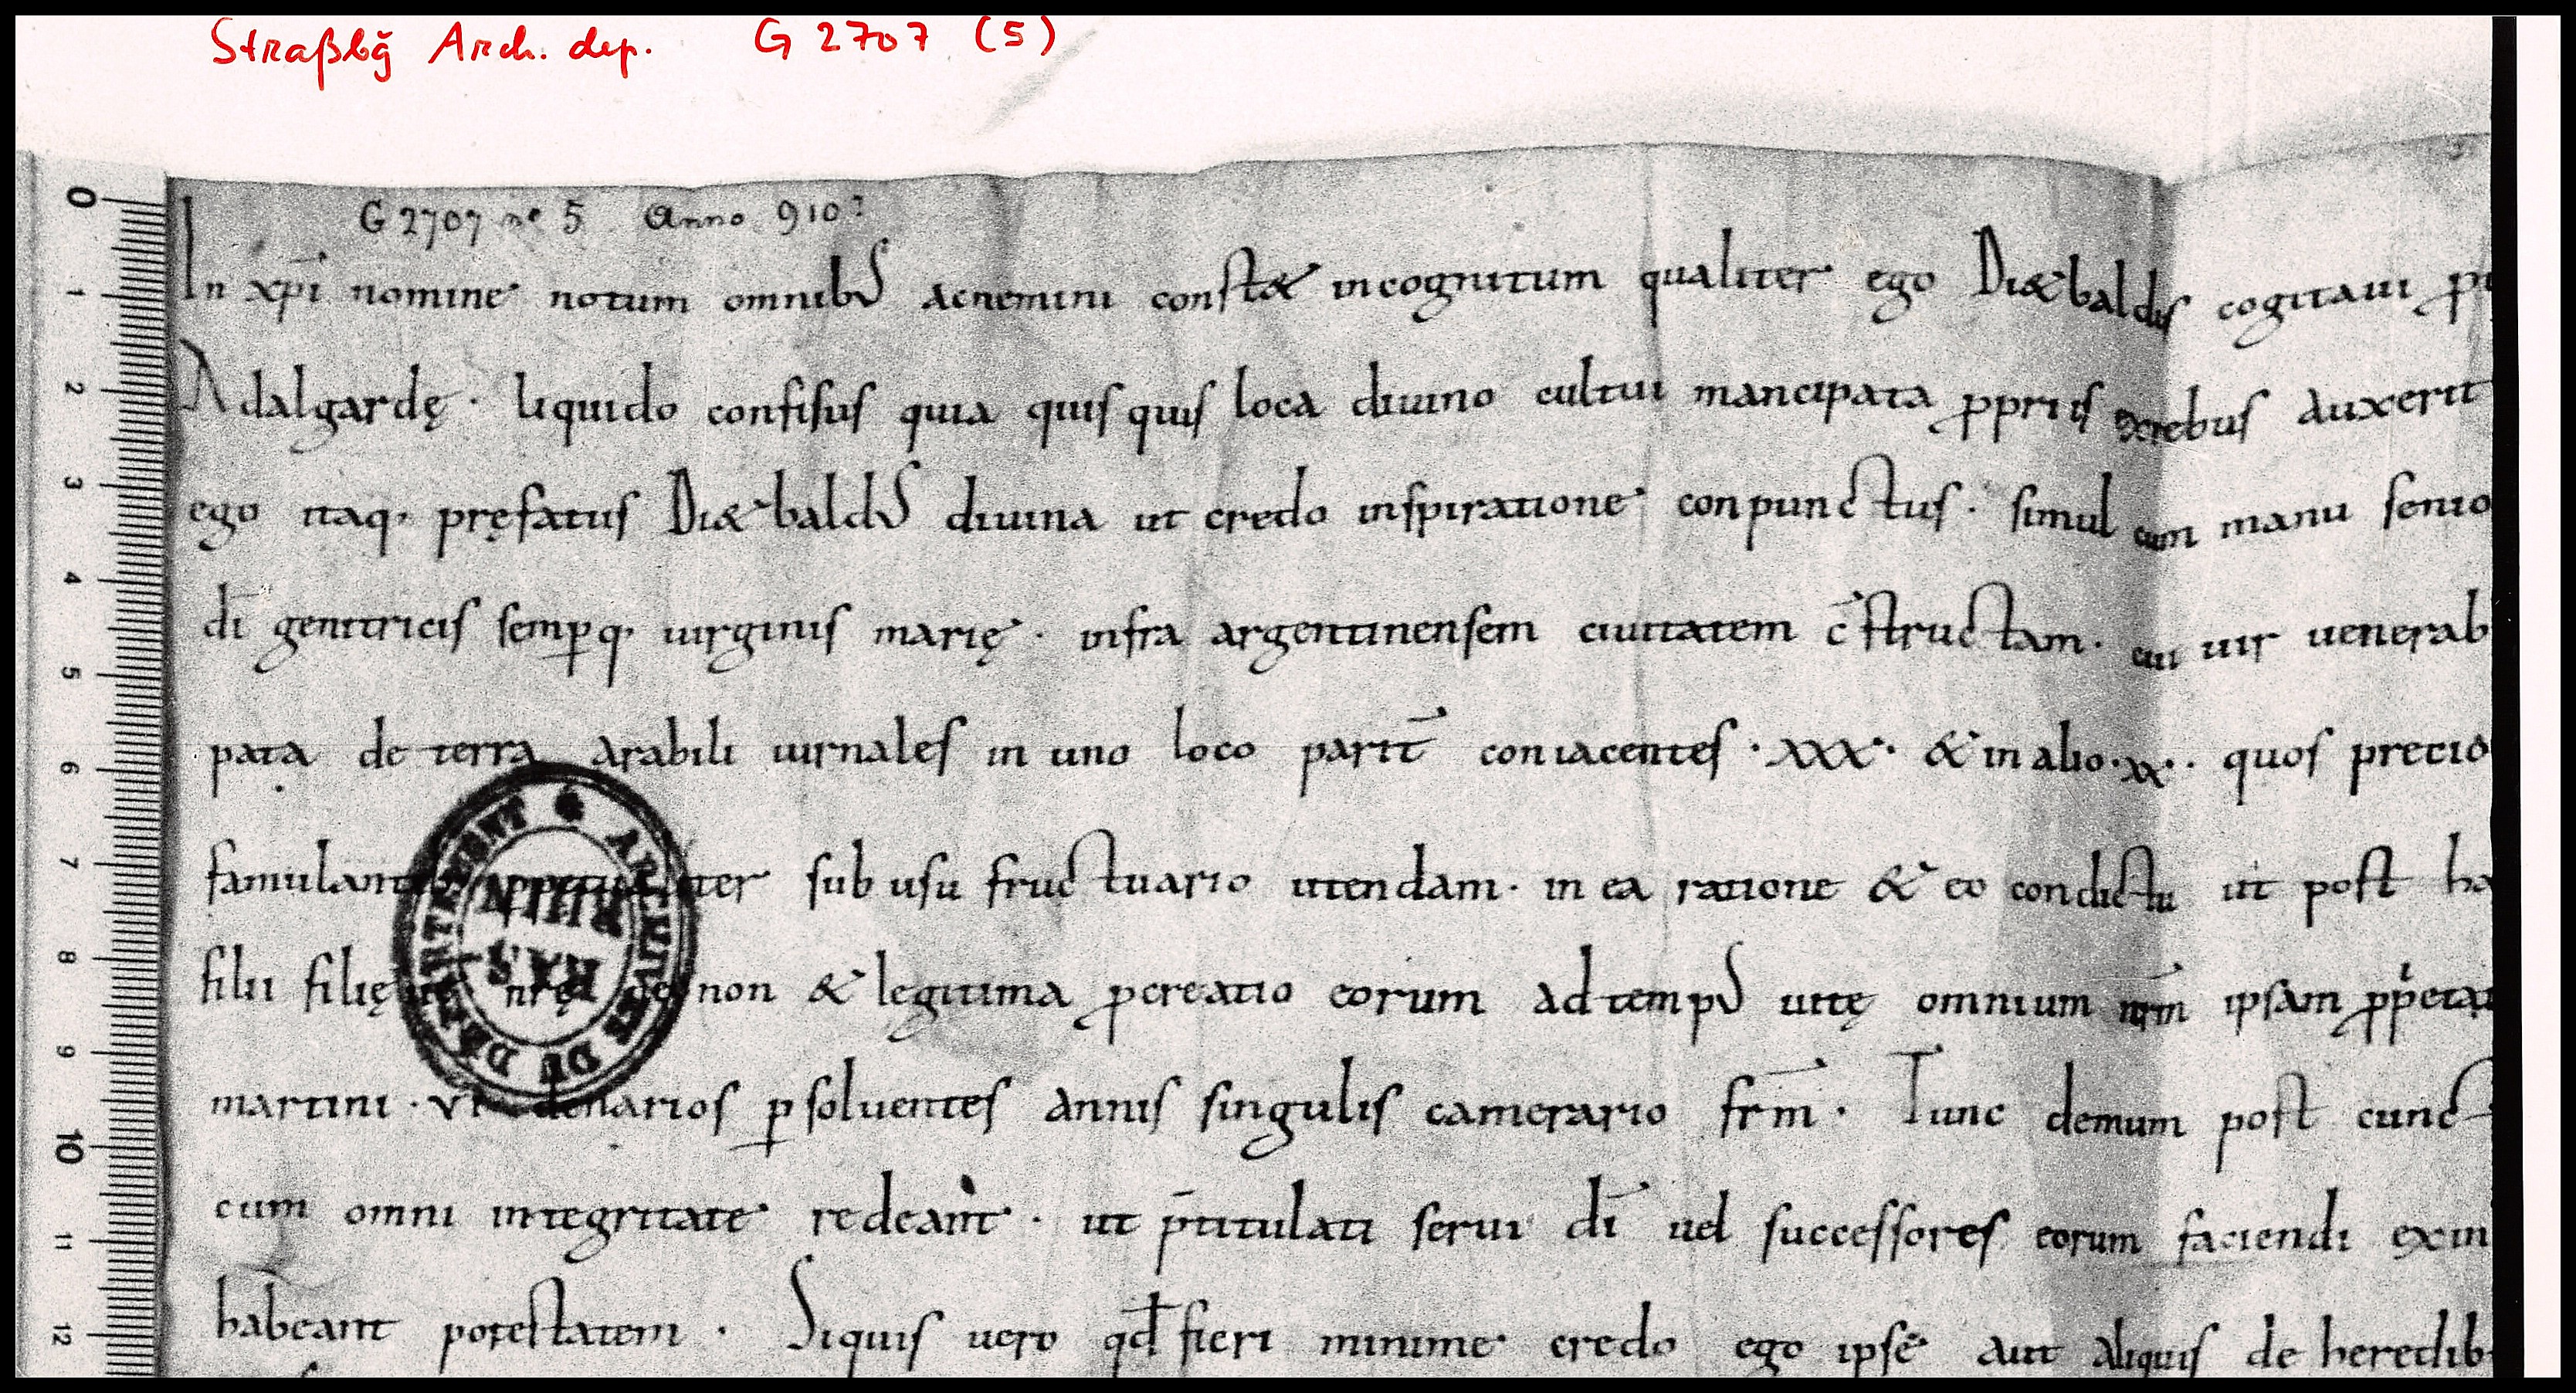 Straßbg̃ Arch. dep. G 2707 (5)
G 2707 nº 5 Anno 910?
In xp̄i nomine notum omnib; acnemini const& incognitum qualiter ego Di&baldus cogitaui
Adalgardę · liquido confisus quia quisquis loca diuino cultui mancipata ꝓpriis rebus auxerit
ego itaq· pręfatus Di&bald; diuina ut credo inspiratione conpunctus · simul cum manu senio
dī genitricis semꝑq· uirginis marię · infra argentinensem ciuitatem c̄structam · cui uir uenerab
pata de terra arabili iurnales in uno loco parit̄ coniacentes · xxx · & in alio · xx · quos precio
sub usu fructuario utendam · in ea ratione & eo condictu ut post ha
filii filię non & legitima ꝓcreatio eorum ad temp; uitę omnium ipsam
martini · vi denarios ꝑsoluentes annis singulis camerario fr̄m · Tunc demum post cunc
cum omni integritate redeant · ut p̄titulati serui dī uel successores eorum faciendi exin
habeant potestatem · Siquis uero qd̄ fieri minime credo ego ipse aut aliquis de heredib
ARCHIVES DU DÉPARTEMENT
BAS
RHIN
0
1
2
3
4
5
6
7
8
9
10
11
12